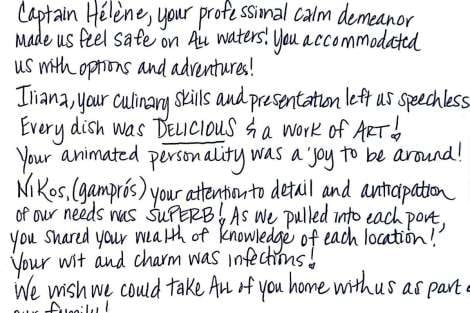 Captain Hélène, your professional calm demeanor
made us feel safe on All waters! You accommodated
us with options and adventures!
Iliana, your culinary skills and presentation left us speechless
Every dish was DELICIOUS & a work of ART!
Your animated personality was a joy to be around!
Nikos, (gamprós) your attention to detail and anticipation
of our needs was SUPERB! As we pulled into each port,
you shared your wealth of knowledge of each location!
Your wit and charm was infectious!
We wish we could take All of you home with us as part
our family!